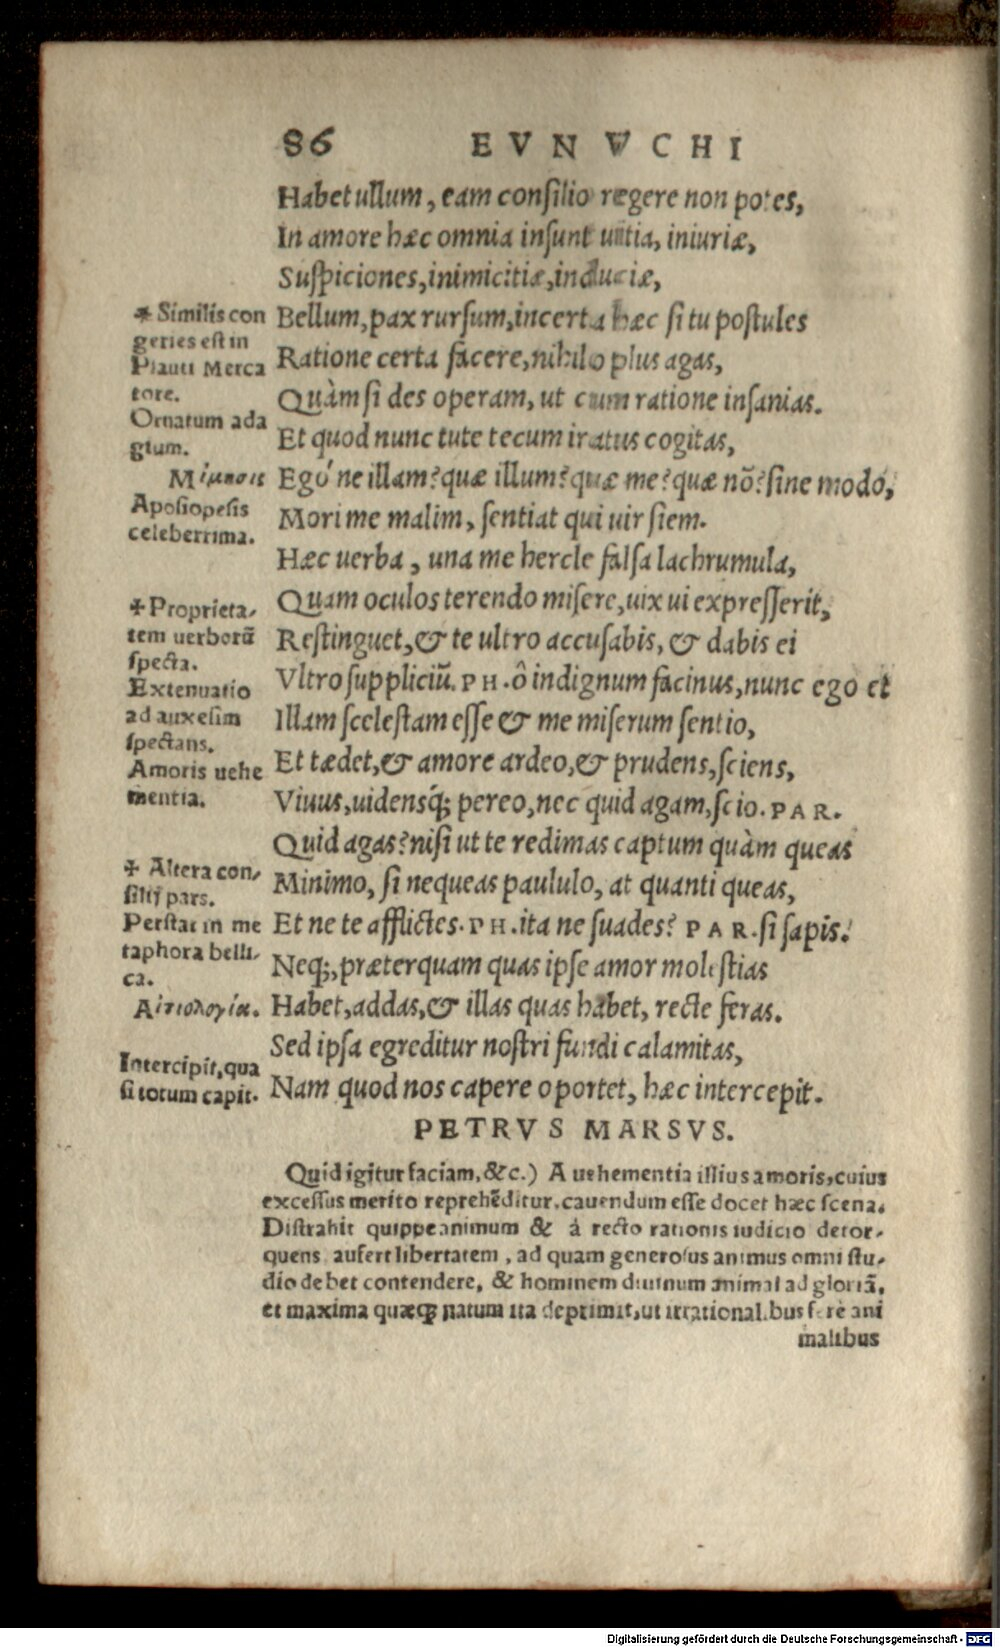 86 EVNVCHI
Habet ullum, eam consilio regere non potes,
In amore hæc omnia insunt uitia, iniuriæ,
Suspiciones, inimicitiæ, induciæ,
Bellum, pax rursum, incerta hæc si tu postules
Ratione certa facere, nihilo plus agas,
Quàm si des operam, ut cum ratione insanias.
Et quod nunc tute tecum iratus cogitas,
Egó ne illam? quæ illum? quæ me? quæ nõ? sine modo,
Mori me malim, sentiat qui uir siem.
Hæc uerba, una me hercle falsa lachrumula,
Quam oculos terendo misere, uix ui expresserit,
Restinguet, & te ultro accusabis, & dabis ei
Vltro suppliciũ. PH. ô indignum facinus, nunc ego et
Illam scelestam esse & me miserum sentio,
Et tædet, & amore ardeo, & prudens, sciens,
Viuus, uidensq́; pereo, nec quid agam, scio. PAR.
Quid agas? nisi ut te redimas captum quàm queas
Minimo, si nequeas paululo, at quanti queas,
Et ne te afflictes. PH. ita ne suades? PAR. si sapis.
Neq;, præterquam quas ipse amor molestias
Habet, addas, & illas quas habet, recte feras.
Sed ipsa egreditur nostri fundi calamitas,
Nam quod nos capere oportet, hæc intercepit.
* Similis con
geries est in
Plauti Merca
tore.
Ornatum ada
gium.
Μίμησις
Aposiopesis
celeberrima.
✢ Proprieta-
tem uerborũ
specta.
Extenuatio
ad auxesim
spectans.
Amoris uehe
mentia.
✢ Altera con-
silij pars.
Perstat in me
taphora belli-
ca.
Αἰτιολογία.
Intercipit, qua
si totum capit.
PETRVS MARSVS.
Quid igitur faciam, &c.) A uehementia illius amoris, cuius
excessus merito reprehẽditur, cauendum esse docet hæc scena.
Distrahit quippe animum & à recto rationis iudicio detor-
quens aufert libertatem, ad quam generosus animus omni stu-
dio debet contendere, & hominem diuinum animal ad gloriã,
et maxima quæq; natum ita deprimit, ut irrationalibus ferè ani
malibus
Digitalisierung gefördert durch die Deutsche Forschungsgemeinschaft - DFG